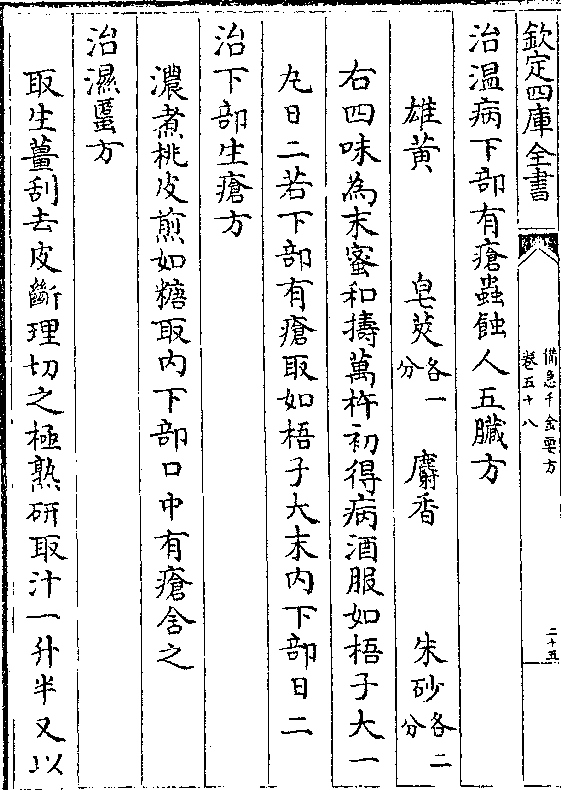 欽定四庫全書
備急千金要方
卷五十八
二十五
治温病下部有瘡蟲蝕人五臟方
雄黄 皂莢各一分 麝香 朱砂各二分
右四味為末蜜和擣萬杵初得病酒服如梧子大一
丸日二若下部有瘡取如梧子大末内下部日二
治下部生瘡方
濃煮桃皮煎如糖取内下部口中有瘡含之
治濕䘌方
取生薑刮去皮斷理切之極熟研取汁一升半又以